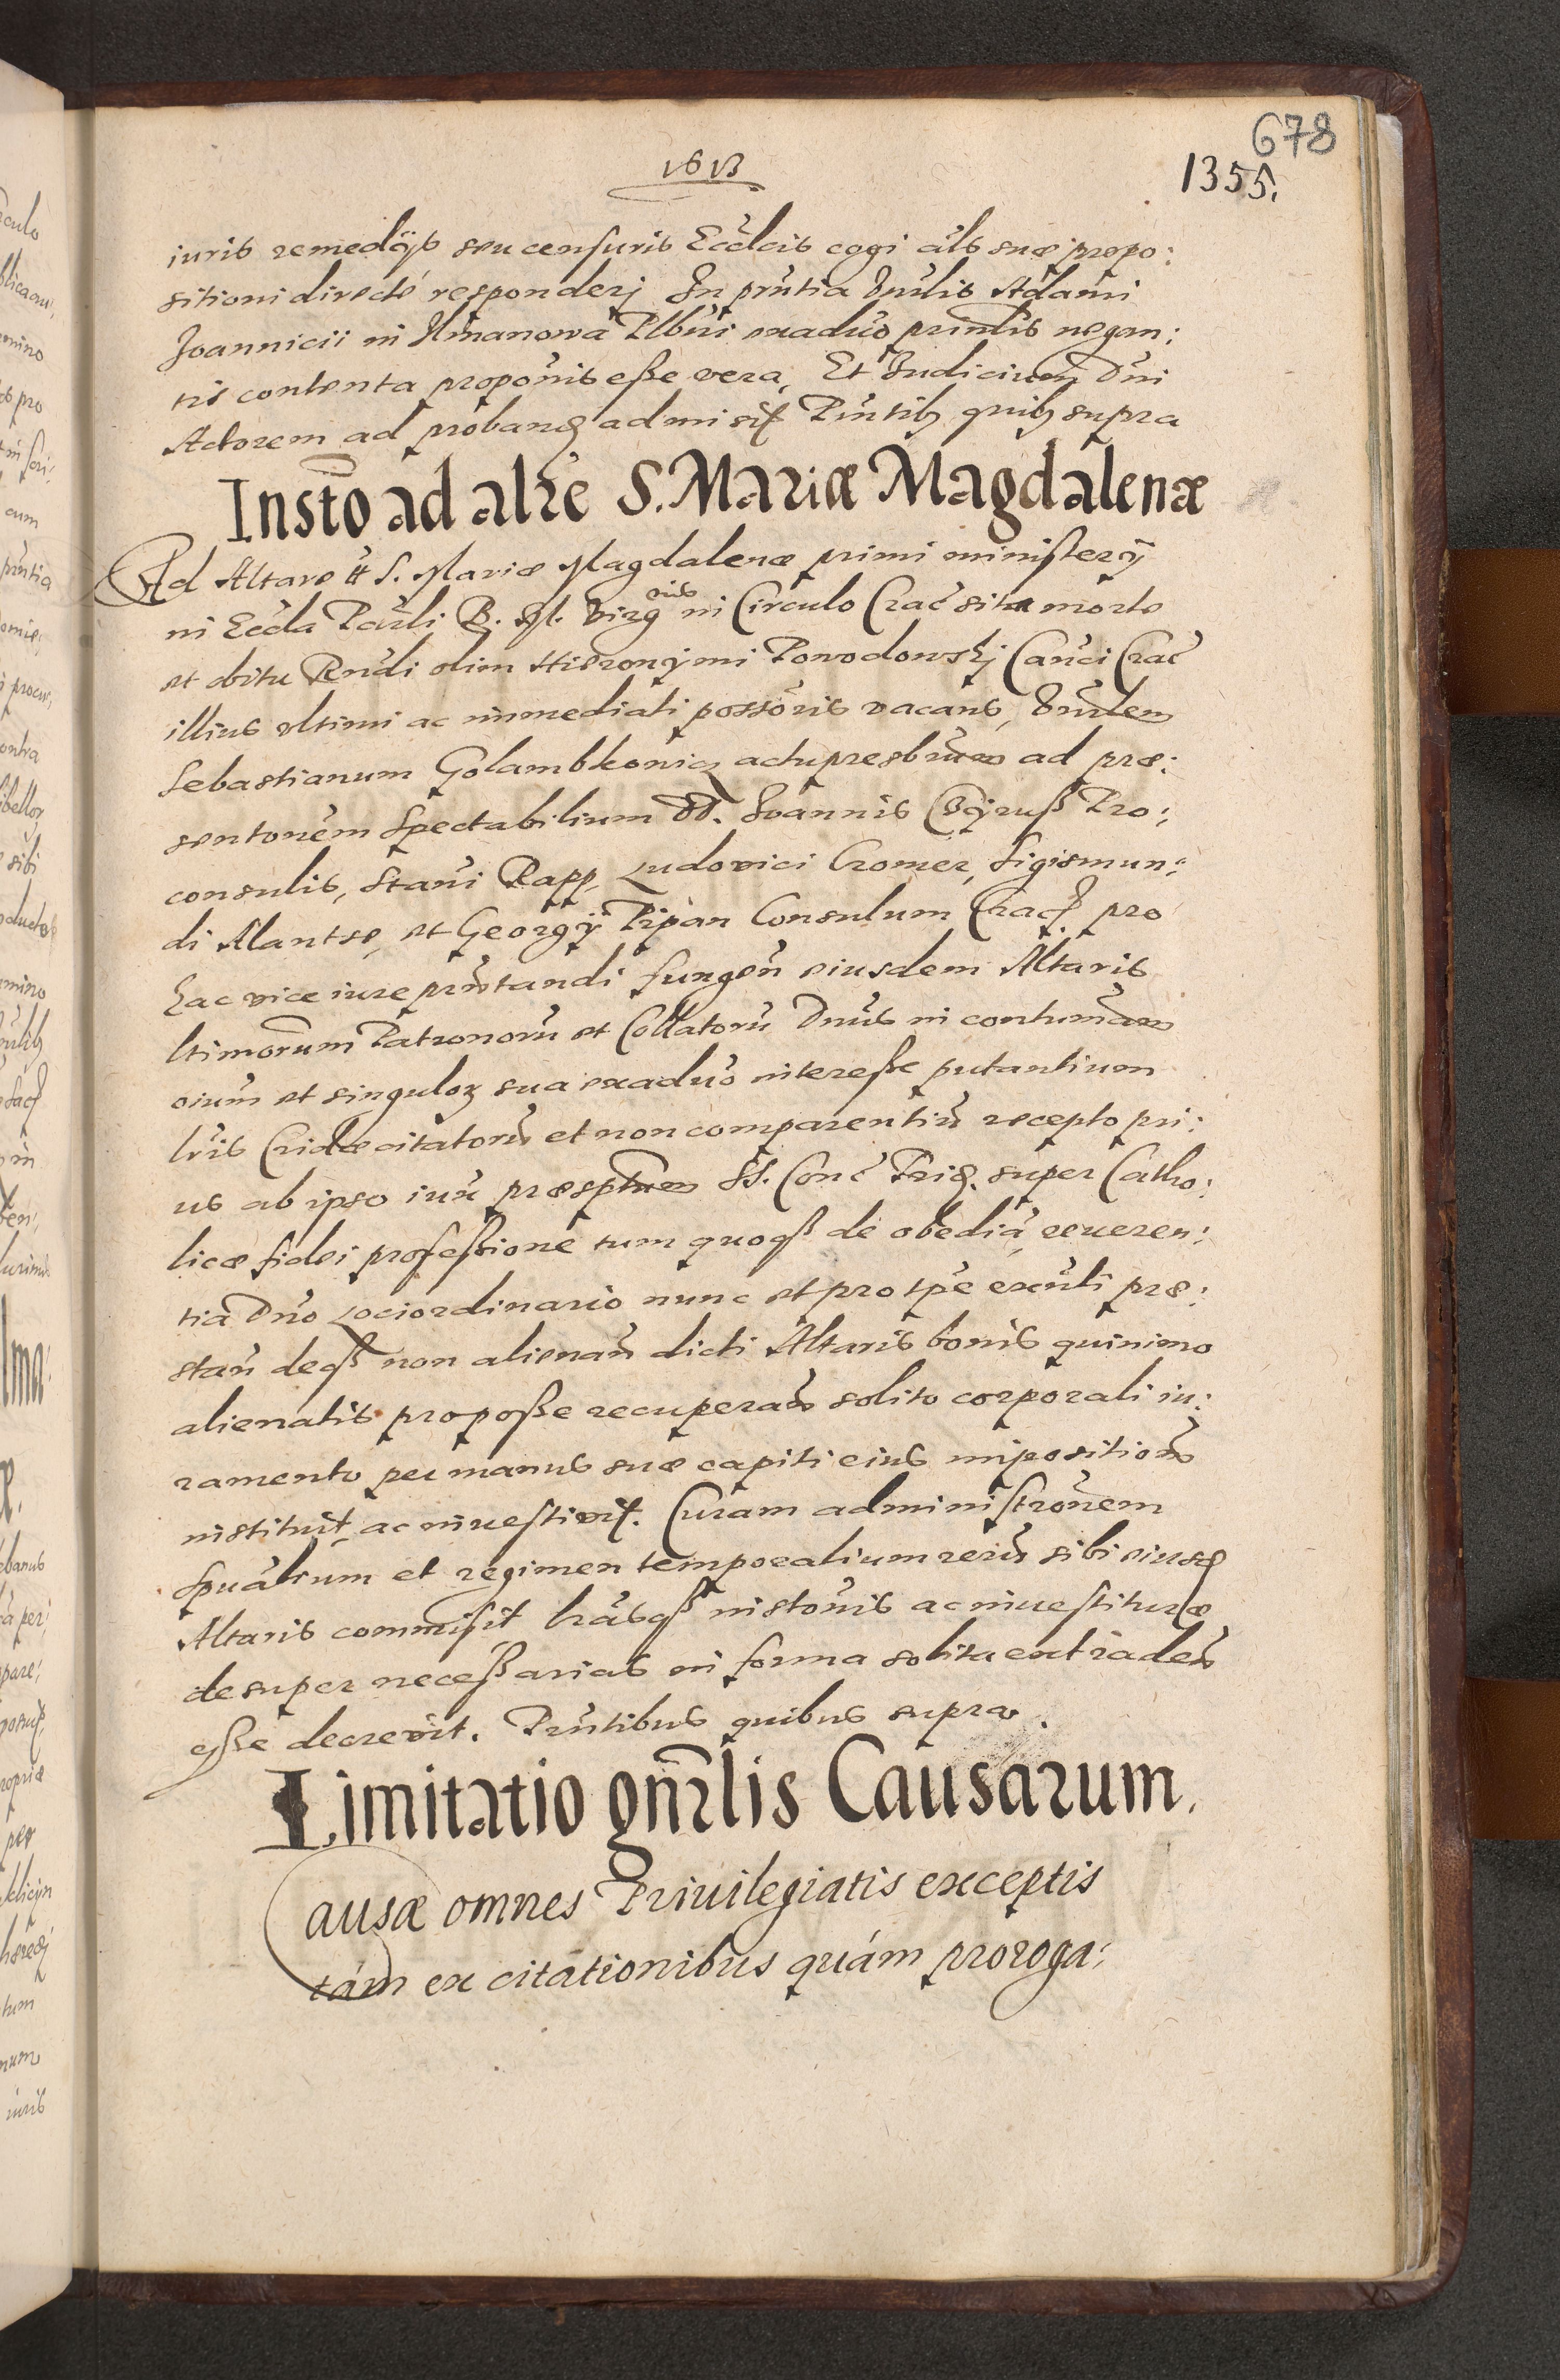 678
1613
1355.
iuris remedÿs seu censuris Eccłcis cogi als suæ propo:
sitioni directé responderj In prntia Dnilis Adami
Joannicii in Ilmanowa Plbni exaduo prinlis negan:
tis contenta propõnis eße vera, Et Judicium Dni
Actorem ad proband admisit Pntib quib supra
Instõ ad alre S. Mariæ Magdalenæ
Ad Altare tt S. Mariæ Magdalenæ primi ministerÿ
in Eccla Parli B. M. Virgnis in Circulo Crac sita morte
et obitu Rendi olim Hieronÿmi Powodowskj Canci Crac
illius vltimi ac immediati possoris vacans, Dnilem
Sebastianum Golambkowicz actu presbrum ad præ:
sentonem Spectabilium DD. Joannis Cÿruß Pro:
consulis, Stani Rapp, Ludovici Cromer, Sigismun:
di Alantse, et Georgÿ Pipan Consulum Crac pro
hac vice iure prntandi fungen eiusdem Altaris
ltimorum Patronorũ et Collatorũ Dnus in contumam
oium et singulor sua exaduo intereße putantium
lris Cridæ citatorũ et non comparentiũ recepto pri:
us ab ipso iux præsptum SS. Conc Trid. super Catho:
licæ fidei profeßione tum quoqß de obedia reueren:
tia Dno Lociordinario nunc et pro tpe exnti præ:
stan deqß non alienan dicti Altaris bonis quinimo
alienatis propoße recuperan solito corporali iu:
ramento per manus suæ capiti eius impositionem
instituit ac inuestivit. Curam administronem
Spualium et regimen temporalium rerũ sibi eiusd
Altaris commisit lrasqß instonis ac inuestituræ
desuper neceßarias in forma solita extraden
eße decrevit. Prntibus quibus supra.
Limitatio gnrlis Causarum.
Causæ omnes Priuilegiatis exceptis
tám ex citationibus quám proroga: